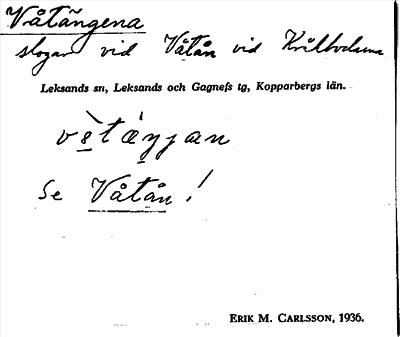 Våtängena
slogar vid Våtån vid Kråkbodarna
Leksands sn, Leksands och Gagnefs tg, Kopparbergs län.
Se Våtån!
ERIK M. CARLSSON, 1936.